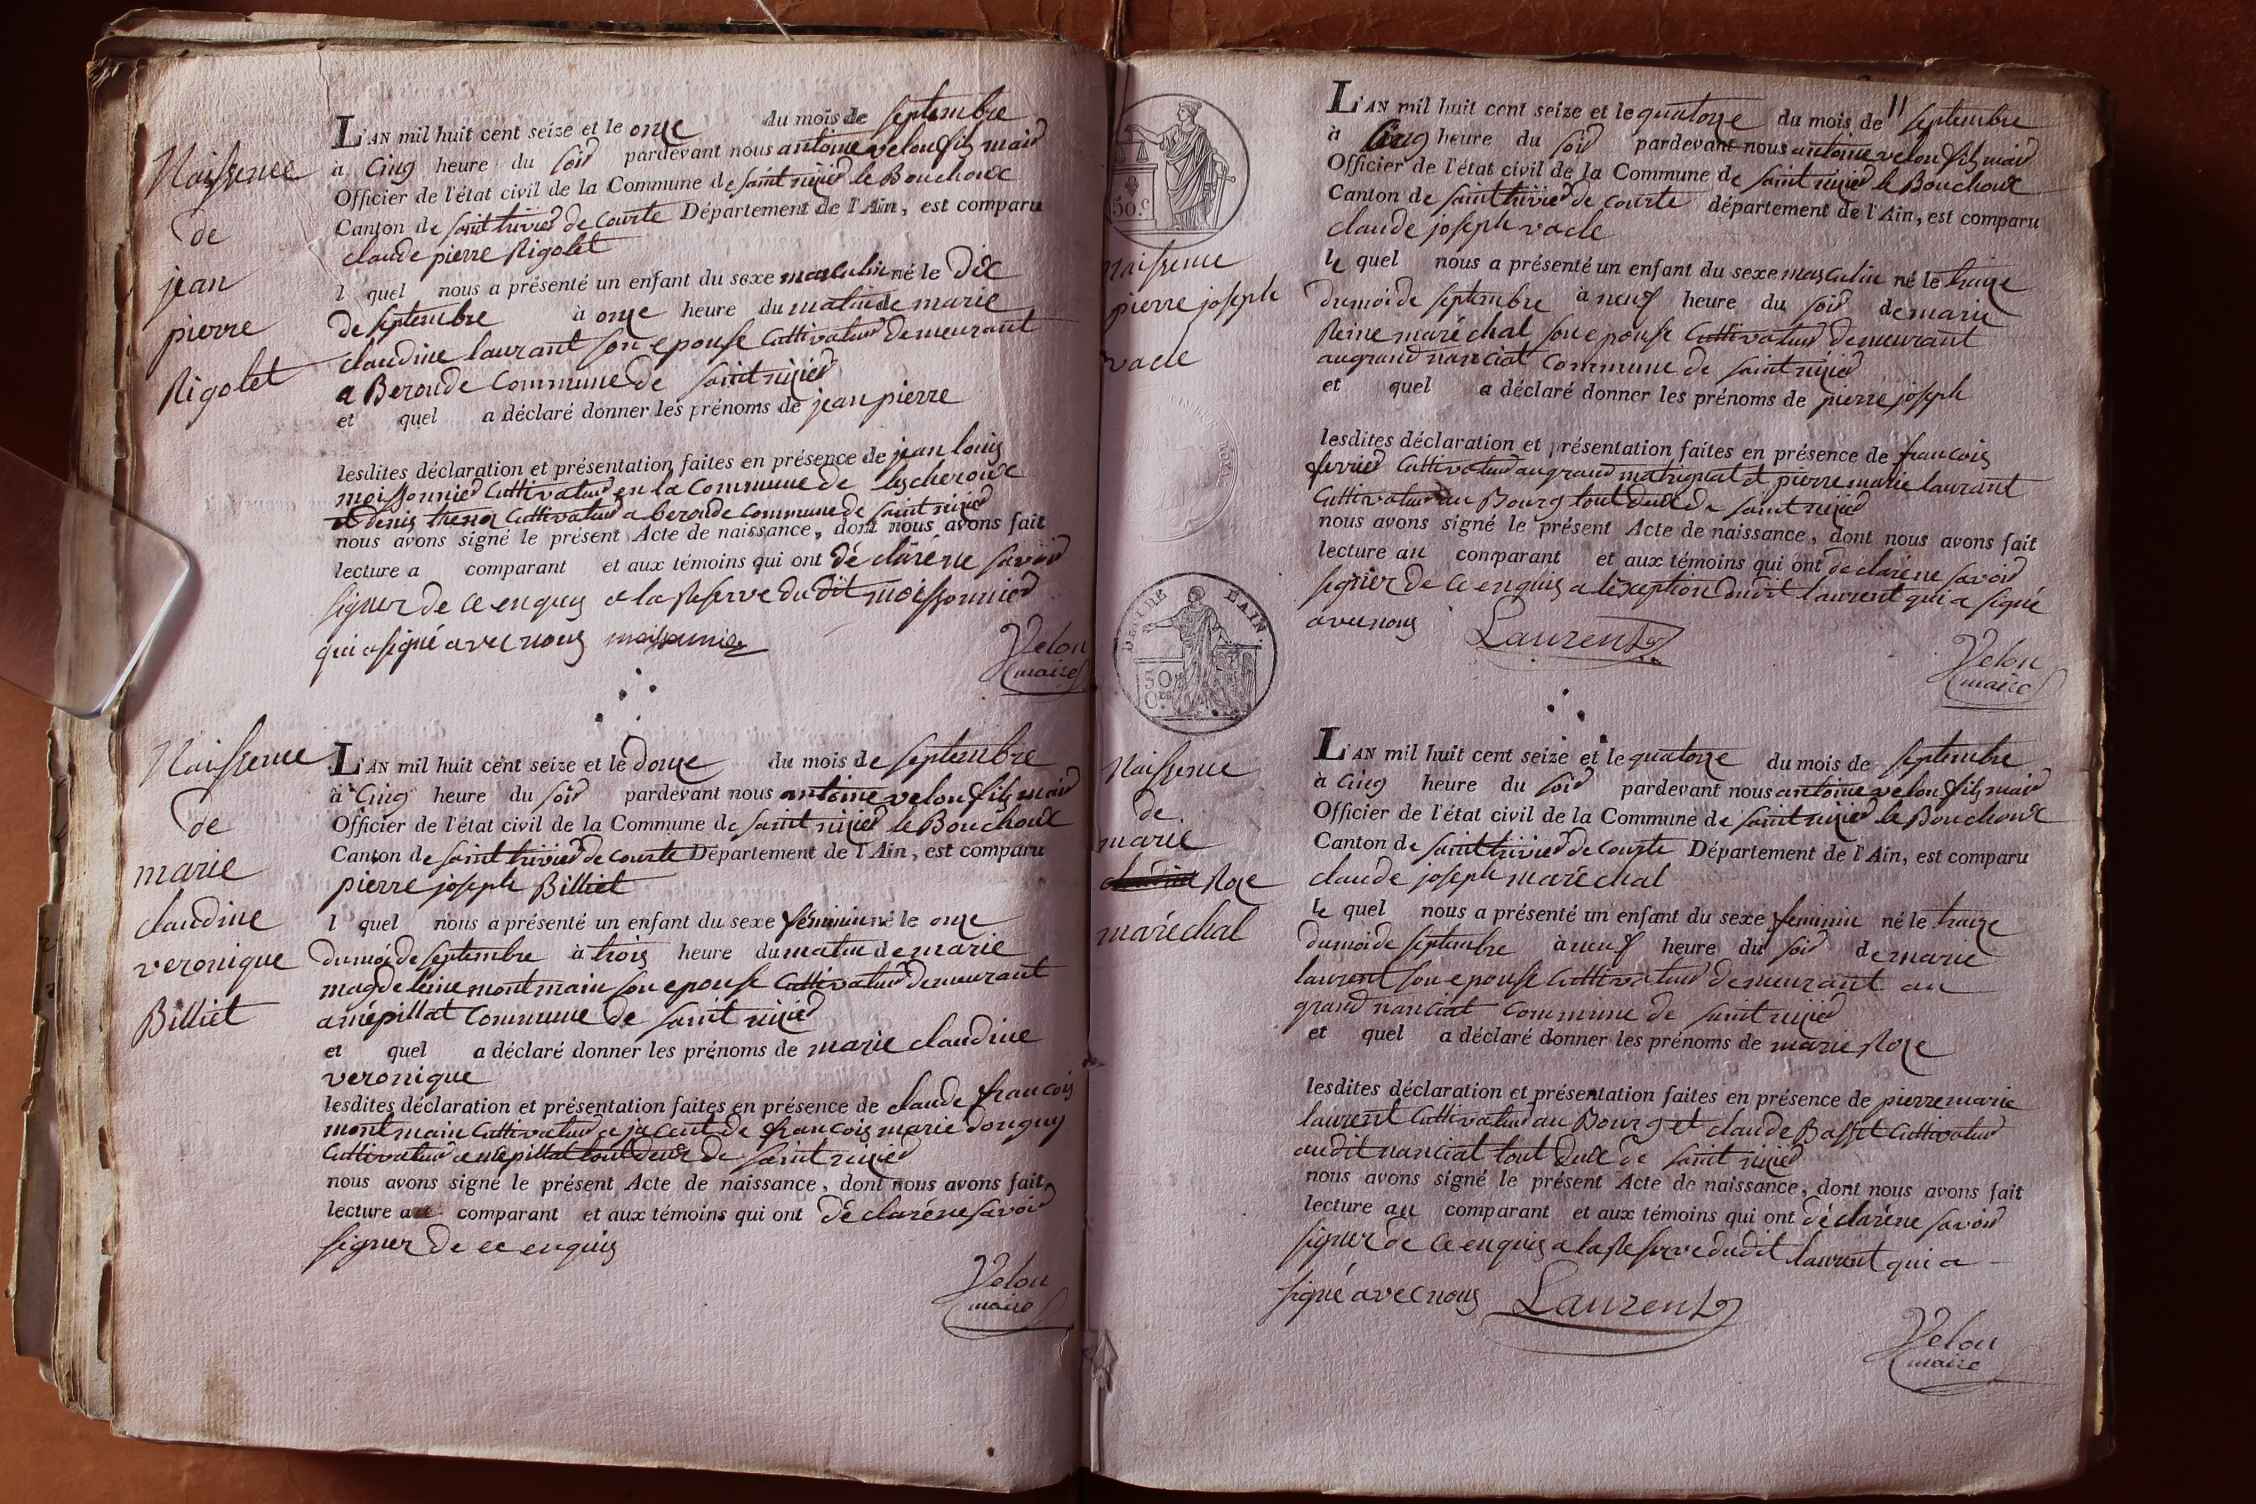 Naissence
de
jean
pierre
Rigolet
L'AN mil huit cent seize et le onze du mois de septembre
à Cinq heure du soir pardevant nous antoine velon fils mair
Officier de l'état civil de la Commune de saint nizier le Bouchoux
Canton de saint trivier de courte Département de l'Ain, est comparu
claude pierre Rigolet
l quel nous a présenté un enfant du sexe masculin né le Dix
de septembre à onze heure du matin de marie
claudine laurant son epouse Cultivateur demeurant
a Beroude Commune de saint nizier
et quel a déclaré donner les prénoms de jean pierre
lesdites déclaration et présentation faites en présence de jean louis
moissonnier Cultivateur en la Commune de lescheroux
et denis Cultivateur a beroude commune de saint nizier
nous avons signé le présent Acte de naissance, dont nous avons fait
lecture a comparant et aux témoins qui ont déclaré ne savoir
signer de ce enquis a la Reserve du dit moissonnier
qui a signé avec nous moissonnier
Velon
maire
Naissence
de
marie
claudine
veronique
Billiet
L'AN mil huit cent seize et le Douze du mois de septembre
à Cinq heure du soir pardevant nous antoine velon fils mair
Officier de l'état civil de la Commune de saint nizier le Bouchoux
Canton de saint trivier de courte Département de l'Ain, est comparu
pierre joseph Billiet
l quel nous a présenté un enfant du sexe féminin né le onze
du moi de septembre à trois heure du matin de marie
magdeleine montmain son epouse Cultivateur demeurant
a mépillat Commune de saint nizier
et quel a déclaré donner les prénoms de marie claudine
veronique
lesdites déclaration et présentation faites en présence de claude francois
montmain Cultivateur a francois marie donguy
Cultivateur a mepillat tout deux de saint nizier
nous avons signé le présent Acte de naissance, dont nous avons fait
lecture au comparant et aux témoins qui ont déclaré ne savoir
signer de ce enquis
Velon
maire
50.c
naissence
pierre joseph
vacle
11
L'AN mil huit cent seize et le quatorze du mois de septembre
à Cinq heure du soir pardevant nous antoine velon fils mair
Officier de l'état civil de la Commune de saint nizier le Bouchoux
Canton de saint trivier de courte département de l'Ain, est comparu
claude joseph vacle
le quel nous a présenté un enfant du sexe masculin né le traize
du moi de septembre à neuf heure du soir de marie
Reine maréchal son epouse Cultivateur demeurant
au grand nanciat Commune de saint nizier
et quel a déclaré donner les prénoms de pierre joseph
lesdites déclaration et présentation faites en présence de francois
ferrier Cultivateur au grand matrignat et pierre marie laurant
Cultivateur au Bourg tout deux de saint nizier
nous avons signé le présent Acte de naissance, dont nous avons fait
lecture au comparant et aux témoins qui ont declaré ne savoir
signer de ce enquis a l'exception dudit laurent qui a signé
avec nous Laurent
Velon
maire
DE L'AIN
50
naissence
de
marie
Roze
maréchal
L'AN mil huit cent seize et le quatorze du mois de septembre
à Cinq heure du soir pardevant nous antoine velon fils mair
Officier de l'état civil de la Commune de saint nizier le Bouchoux
Canton de saint trivier de courte Département de l'Ain, est comparu
claude joseph maréchal
le quel nous a présenté un enfant du sexe feminin né le traize
du moi de septembre à neuf heure du soir de marie
laurent son epouse Cultivateur demeurant au
grand nanciat Commune de saint nizier
et quel a déclaré donner les prénoms de marie Roze
lesdites déclaration et présentation faites en présence de pierre marie
laurent Cultivateur au Bourg et claude Basset Cultivateur
audit nanciat tout deux de saint nizier
nous avons signé le présent Acte de naissance, dont nous avons fait
lecture au comparant et aux témoins qui ont déclaré ne savoir
signer de ce enquis a la Reserve dudit laurent qui a
signé avec nous Laurent
Velon
maire